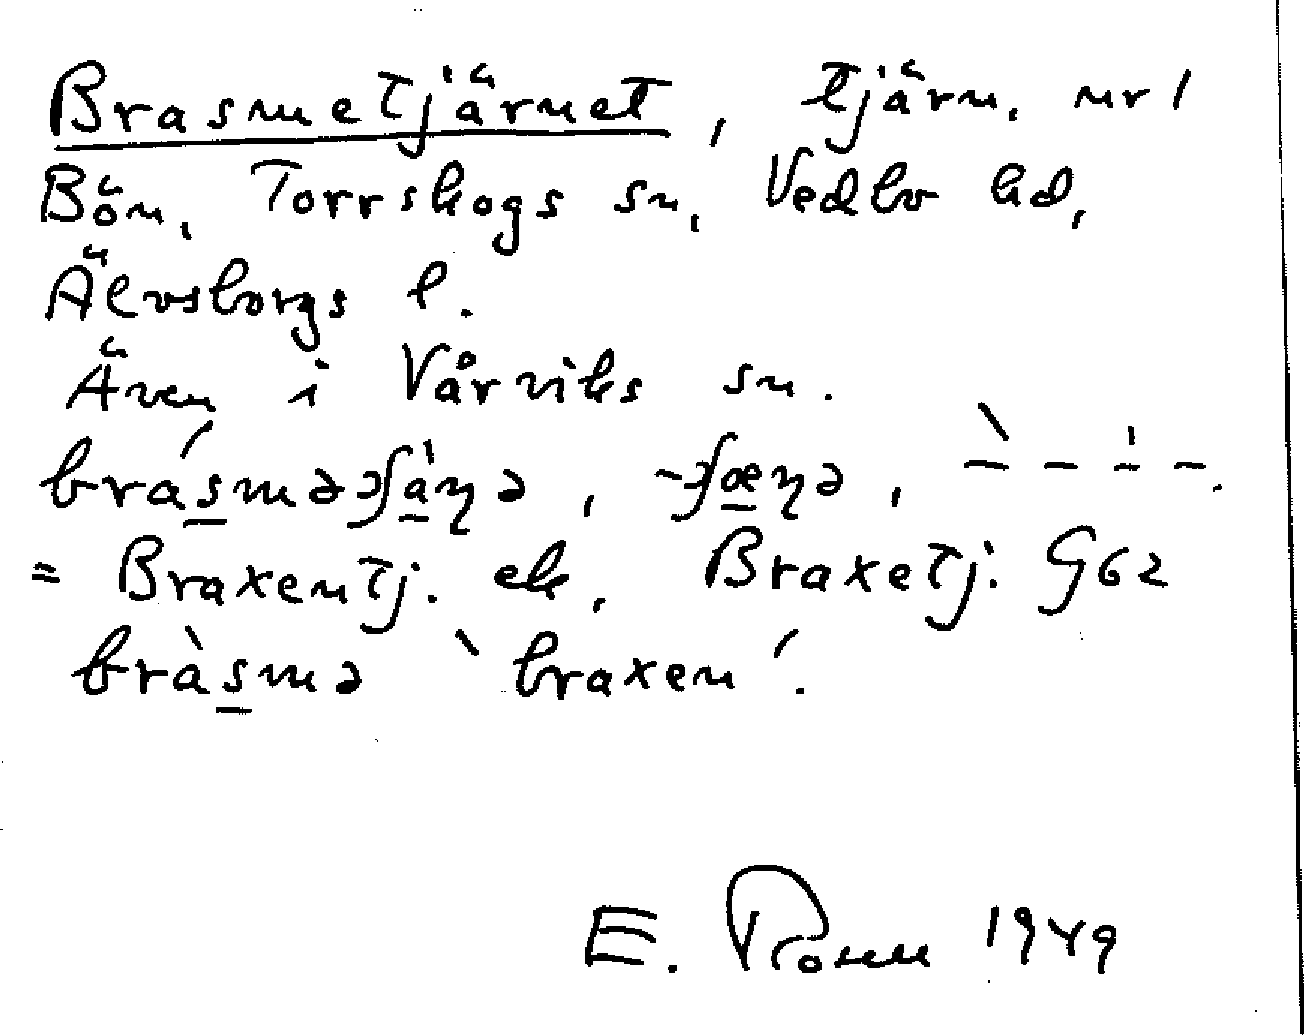 Brasmetjärnet, tjärn, nr 1
Bön, Torrskogs sn, Vedbo hd,
Älvsborgs l.
Även i Vårviks sn.
= Braxentj. ek, Braxetj. G62
bràsmə `braxen´.
E. Rosen 1949